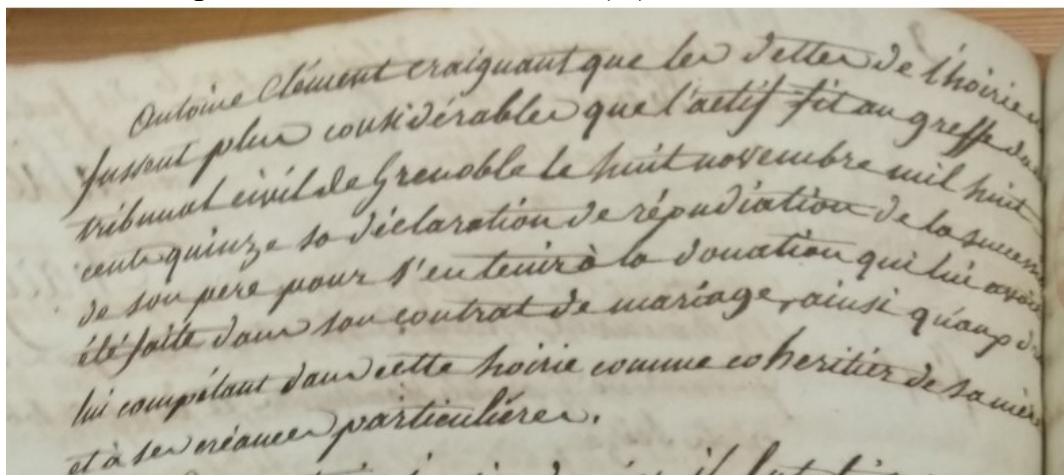 Antoine Clément craignant que les dettes de l'hoirie
fussent plus considérables que l'actif fit au greffe du
tribunal civil de Grenoble le huit novembre mil huit
cents quinze sa déclaration de répudiation de la
de son pere pour s'en tenir à la donation qui lui avoit
été faite dans son contrat de mariage, ainsi qu'aux
lui compétant dans cette hoirie comme coheritier de sa mère
et à ses créances particulières.